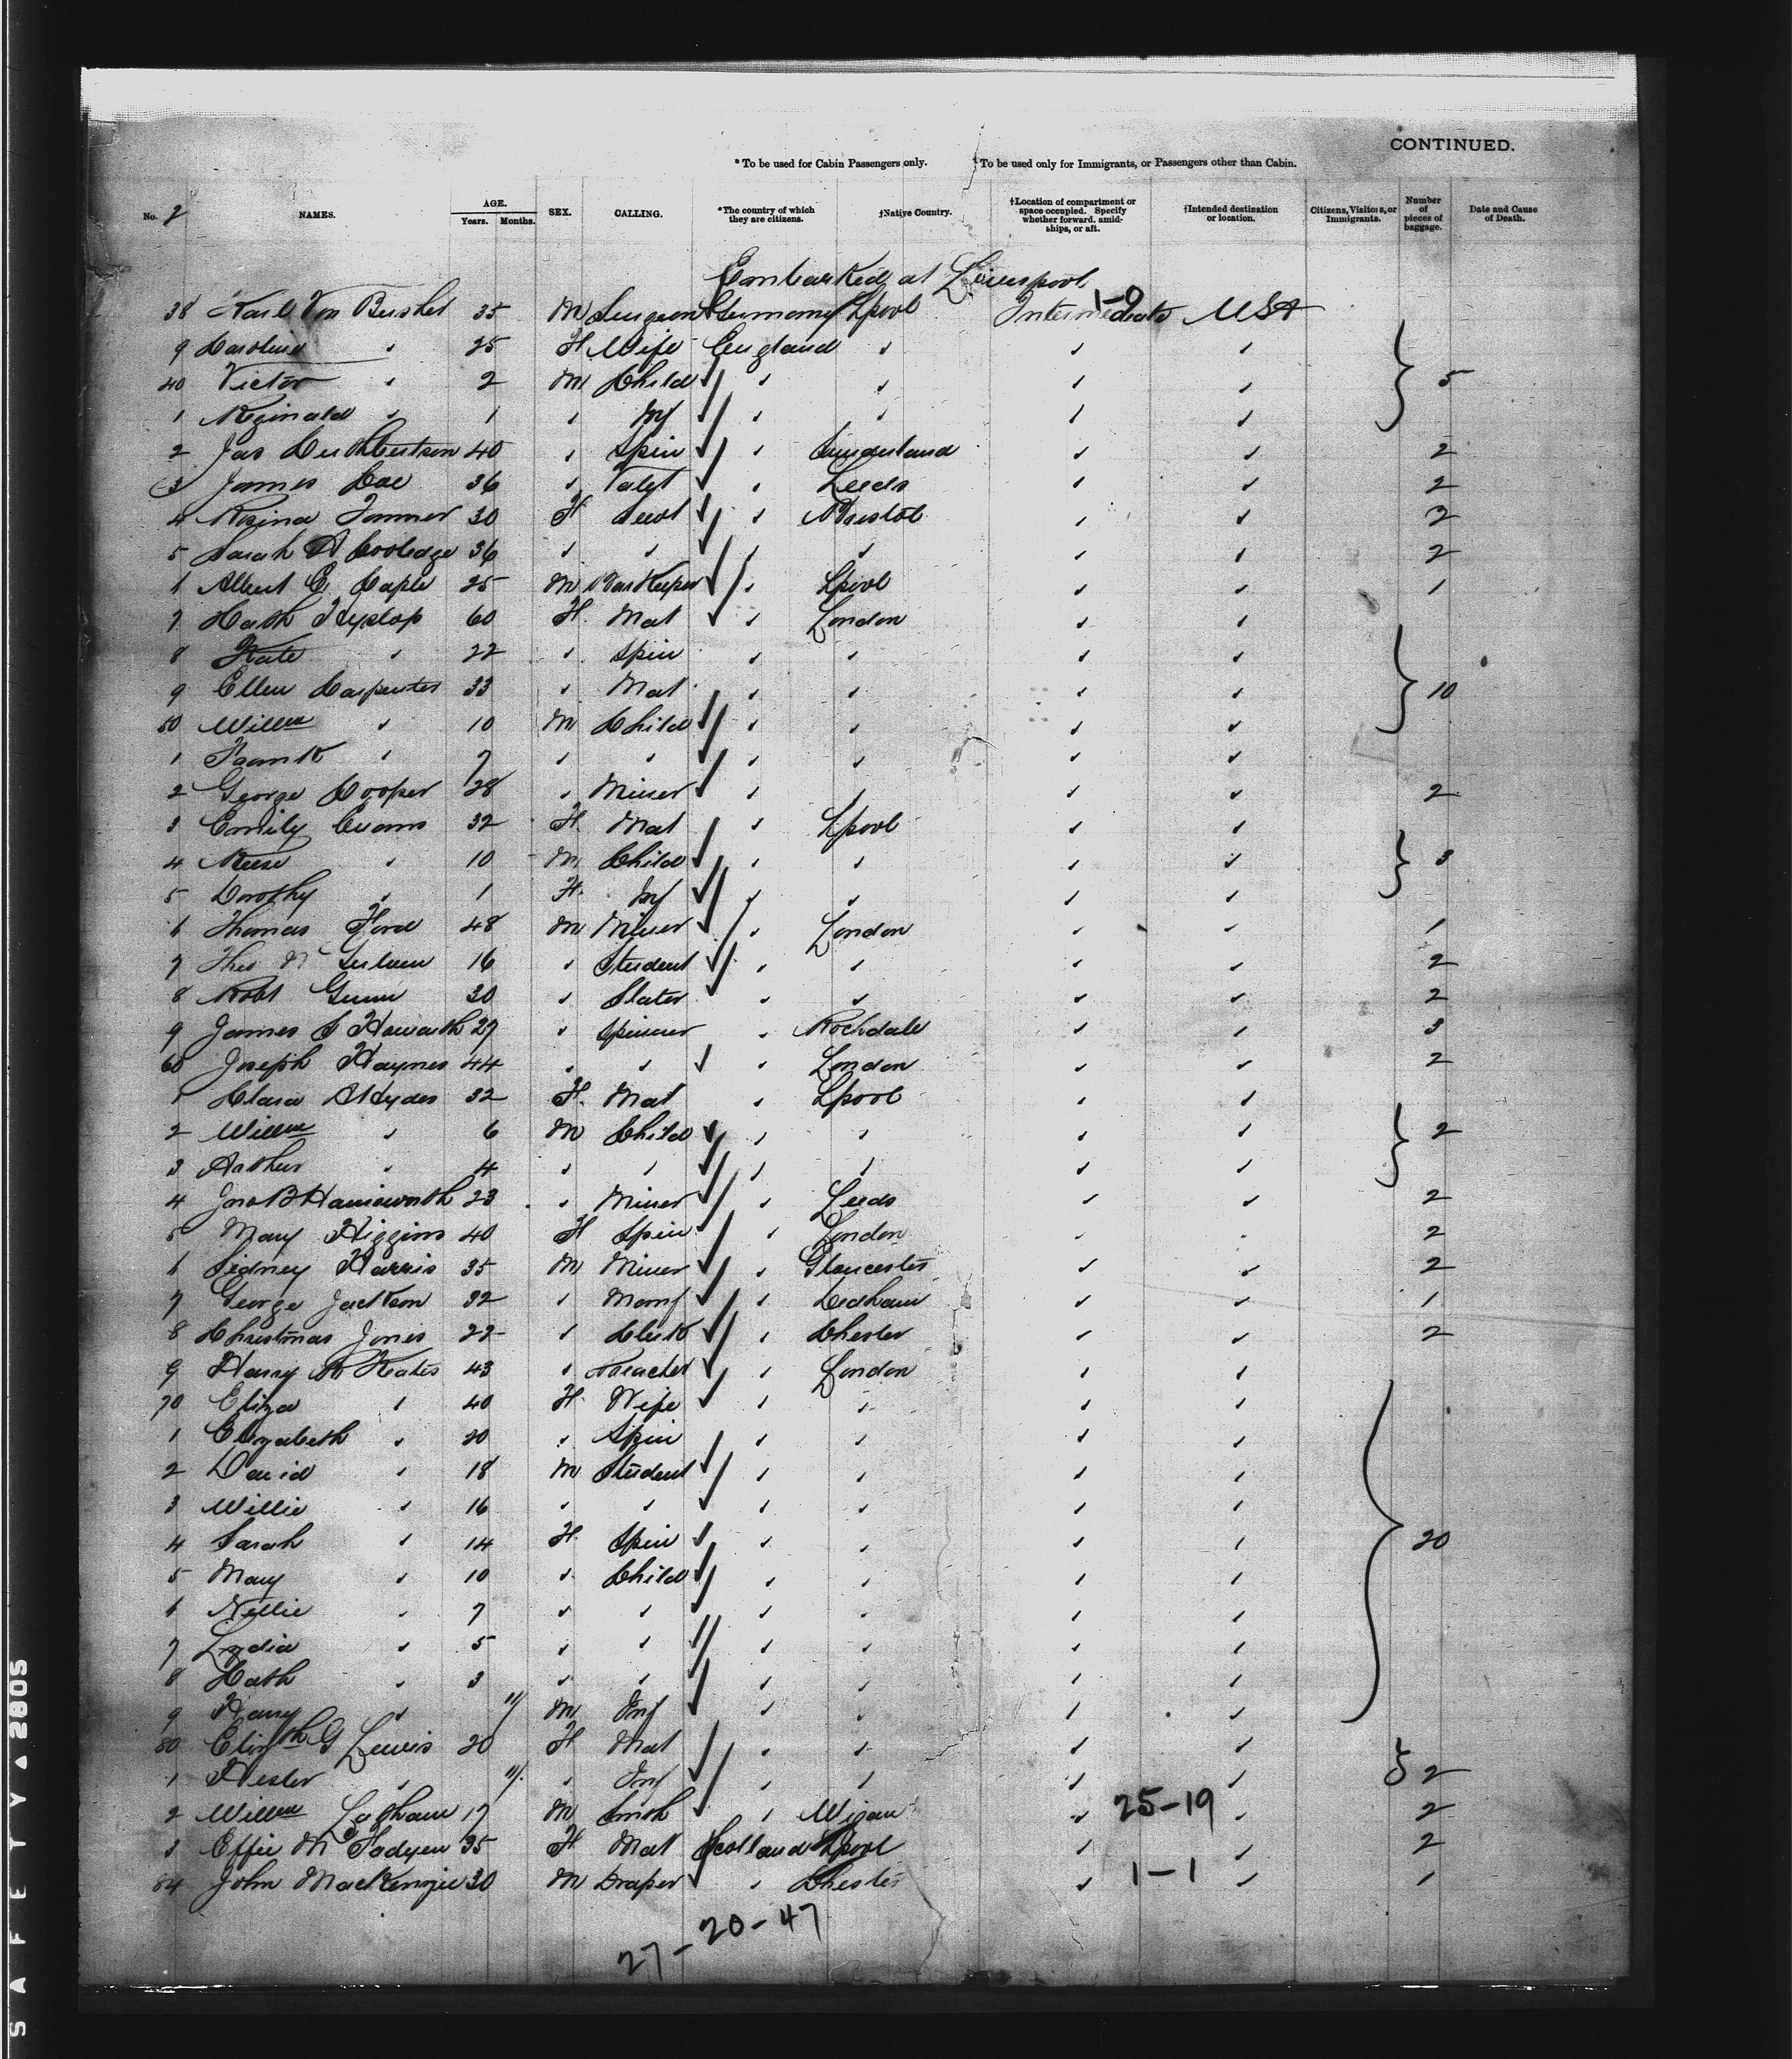 CONTINUED.
* To be used for Cabin Passengers only. † To be used only for Immigrants, or Passengers other than Cabin.
No. 2 NAMES. AGE. Years. Months. SEX. CALLING. *The country of which they are citizens. †Native Country. †Location of compartment or space occupied. Specify whether forward, amidships, or aft. †Intended destination or location. Citizens, Visitors, or Immigrants. Number of pieces of baggage. Date and Cause of Death.
Embarked at Liverpool
1-0
38 Karl Von Bushel 35 M Surgeon Germany Lpool Intermediate USA
9 Caroline " 25 F. Wife England "
40 Victor " 2 M Child " " 5
1 Reginald " 1 " Inf " "
2 Jas Cuthbertson 40 " Spin " Sunderland 2
3 James Coe 36 " Valet " Leeds 2
4 Rosina 30 F Servt " Bristol 2
5 Sarah A Cooledge 36 " " " " 2
6 Albert E Caple 25 M BarKeeper " Lpool 1
7 Cath Hyslop 60 F. Mat " London
8 Kate " 22 " Spin " "
9 Ellen Carpenter 33 " Mat " " 10
50 Willm " 10 M Child " "
1 Frank " 7 " " " "
2 George Cooper 28 " Miner " " 2
3 Emily Evans 32 F. Mat " Lpool
4 Reese " 10 M Child " " 3
5 Dorothy " 1 F. Inf " "
6 Thomas Ford 48 M Miner " London 1
7 Theo 16 " Student " " 2
8 Robt Gunn 30 " Slater " " 2
9 James S Haworth 27 " Spinner " Rochdale 3
60 Joseph Haynes 44 " " " London 2
1 Clara Hydes 32 F. Mat " Lpool
2 Willm " 6 M Child " " 2
3 Arthur " 4 " " " "
4 Jno B Hainsworth 23 " Miner " Leeds 2
5 Mary Higgins 40 F Spin " London 2
6 Sidney Harris 35 M Miner " Gloucester 2
7 George Jackson 32 " Manf " 1
8 Christmas Jones 22 " Clerk " Chester 2
9 Harry Keates 43 " " London
70 Eliza " 40 F. Wife " "
1 Elizabeth " 20 " Spin " "
2 David " 18 M Student " "
3 Willie " 16 " " " "
4 Sarah " 14 F. Spin " " 20
5 Mary " 10 " Child " "
6 Nellie " 7 " " " "
7 Lydia " 5 " " " "
8 Cath " 3 " " " "
9 Harry " 11/ M Inf " "
80 Elizth G Lewis 20 F Mat " "
1 Hester " 11/. " Inf " " 2
2 Willm Latham 17 M Smith " Wigan 25-19 2
3 Effie McFadyen 35 F Mat Scotland Lpool 2
84 John MacKenzie 30 M Draper " Chester 1-1 1
27-20-47
SAFETY ▲ 2805